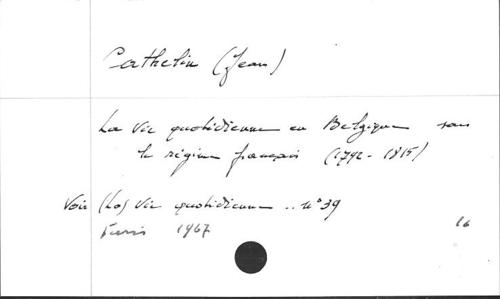 Cathelin (Jean)
La Vie quotidienne en Belgique sous
le régime français (1792-1815)
Voir (La) Vie quotidienne .. n° 39
Paris 1967
16